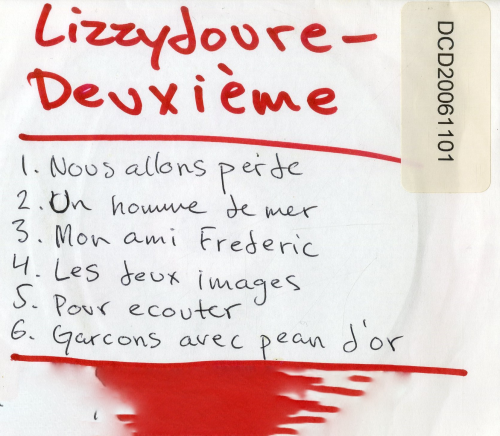 Lizzydoure-
Deuxième
DCD20061101
1. Nous allons perde
2. Un homme de mer
3. Mon ami Frederic
4. Les deux images
5. Pour ecouter
6. Garcons avec peau d'or